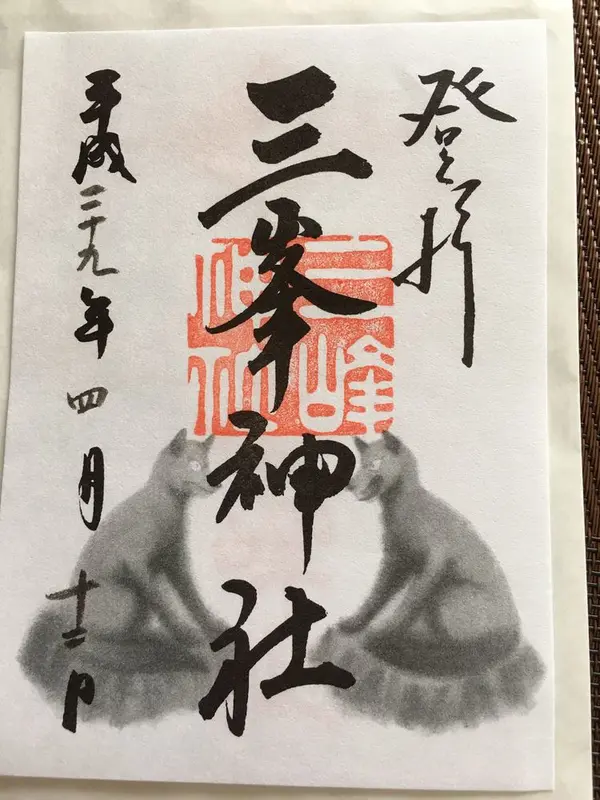 登拝
三峯神社
三峰神社
平成二十九年四月十二日